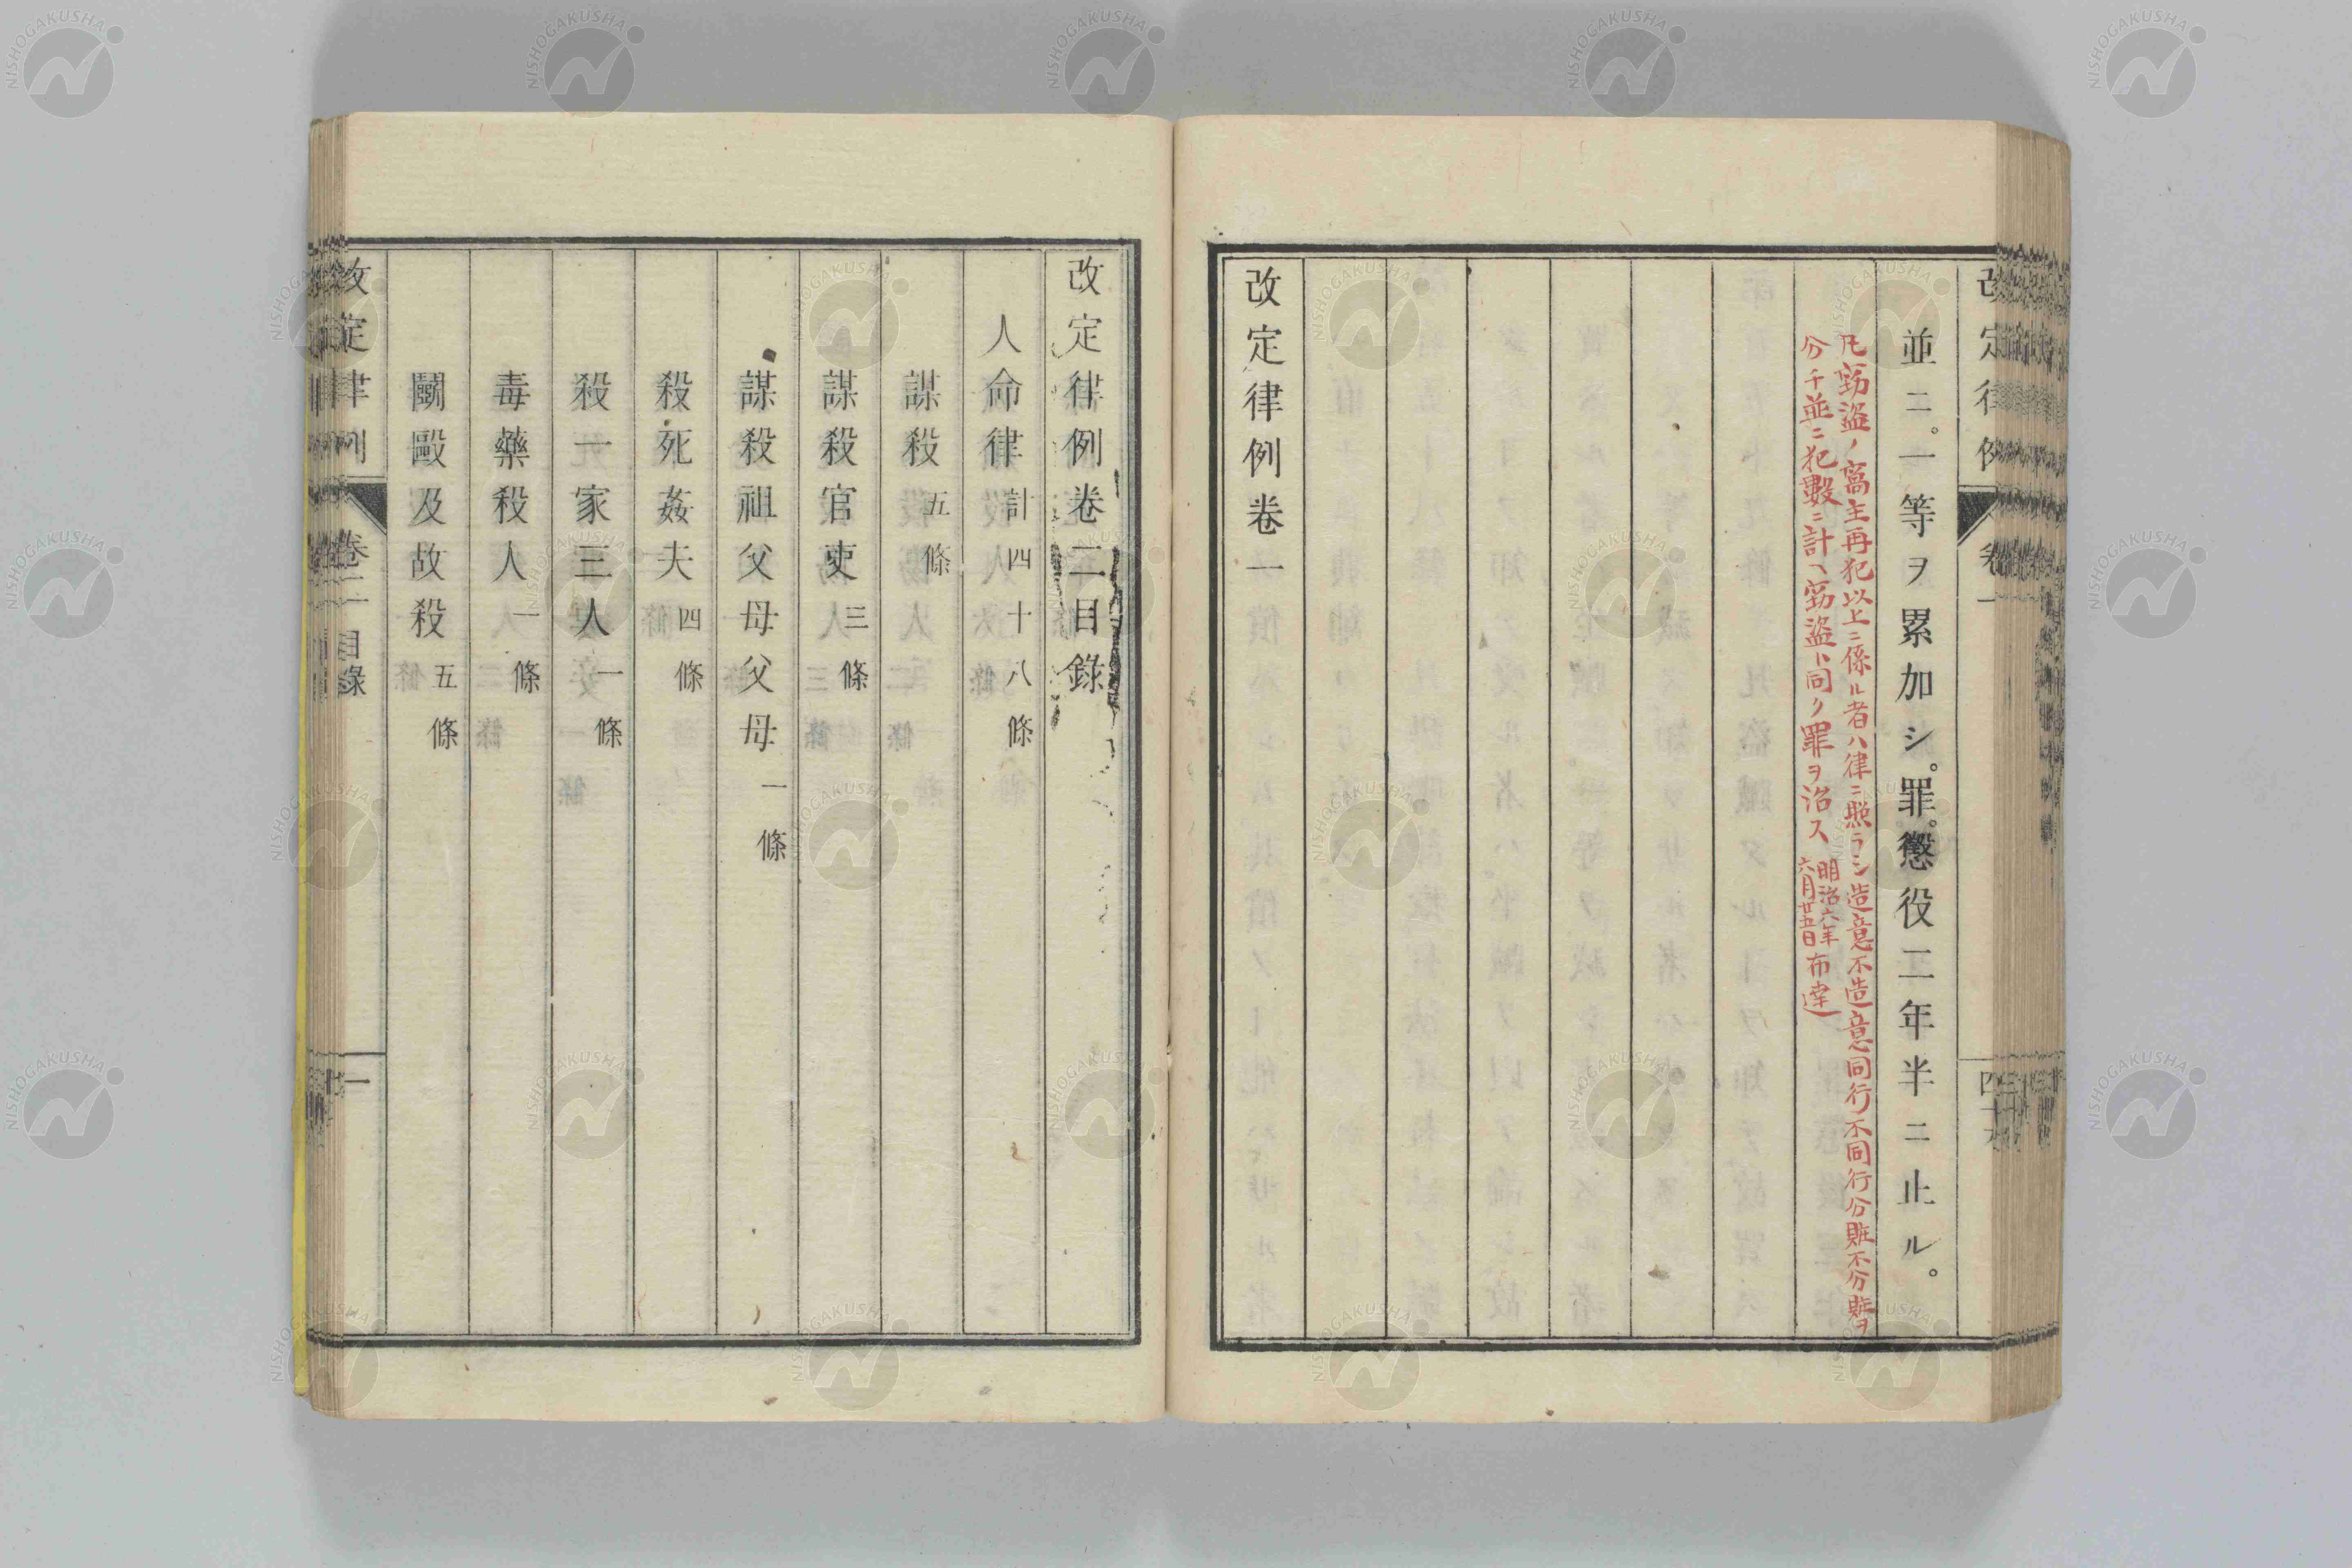 並ニ。一等ヲ累加シ。罪。懲役二年半ニ止ル。
凡窃盗ノ窩主再犯以上ニ係ル者ハ律ニ照ラシ造意不造意同行不同行分賍不分賍ヲ
分チ並ニ犯數ニ計ヘ窃盗ト同ク罪ヲ治ス
明治六年
六月廿五日
布達
改定律例卷一
改定律例卷二目錄
人命律 計四十八條
謀殺 五條
謀殺官吏 三條
謀殺祖父母父母 一條
殺死姦夫 四條
殺一家三人 一條
毒藥殺人 一條
鬭毆及故殺 五條
改定律例 卷二目錄 一
NISHOGAKUSHA